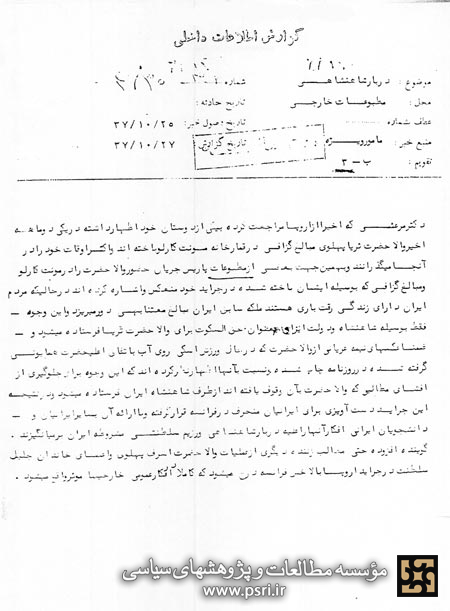 گزارش اطلاعات داخلی
موضوع : دربار شاهنشاهی شماره
محل : مطبوعات خارجی تاریخ حادثه :
عطف شماره تاریخ وصول خبر : ۳۷/۱۰/۲۵
منبع خبر : مامور ویژه تاریخ گزارش : ۳۷/۱۰/۲۷
تقویم : ب - ۳
دکتر مرعشی که اخیرا از اروپا مراجعت کرده ببینی از دوستان خود اظهار داشته در یکی دو ماهه
اخیر والاحضرت ثریا پهلوی مبالغ گزافی در قمارخانه مونت کارلو باخته اند و اکثر اوقات خود را در
آنجا میگذرانند و بهمین جهت بعضی از مطبوعات پاریس جریان حضور والا حضرت را در مونت کارلو
و مبالغ گزافی که بوسیله ایشان باخته شده در جراید خود منعکس و اشاره کرده اند در حالیکه مردم
ایران دارای زندگی رقت باری هستند ملکه سابق ایران مبالغ معتنابهی دور میریزد و این وجوه -
فقط بوسیله شاهنشاه و دولت ایران بعنوان حق السکوت برای والا حضرت ثریا فرستاده میشود و -
ضمنا عکسهای نیمه عریانی از والاحضرت که در حال ورزش اسکی روی آب باتفاق
گرفته شده در روزنامه چاپ شده و نسبت بآنها اظهار کرده اند که این وجوه برای جلوگیری از
افشای مطالبی که والا حضرت بآن وقوف یافته اند از طرف شاهنشاه ایران فرستاده میشود و در نتیجه
این جراید دست آویزی برای ایرانیان منحرف در فرانسه قرار گرفته و با ارائه آن بسایر ایرانیان و -
دانشجویان ایرانی افکار آنها را علیه دربار شاهنشاهی و رژیم سلطنتی مشروطه ایران برمیانگیزند .
گوینده افزوده حتی مطالب زننده دیگری از عملیات والا حضرت اشرف پهلوی و اعضای خاندان جلیل
سلطنت در جراید اروپا بالاخص فرانسه درج میشود که کاملا در افکار عمومی خارجیها موثر واقع میشود .
مؤسسه مطالعات و پژوهشهای سیاسی
www.psri.ir